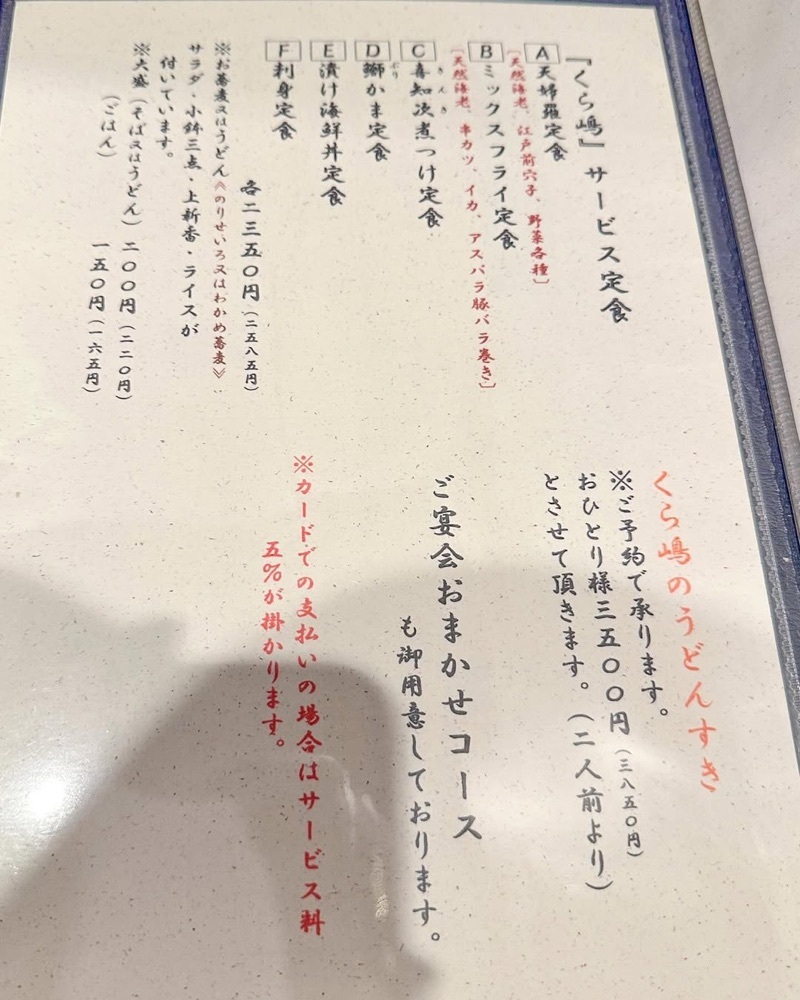 『くら嶋』サービス定食
A 天婦羅定食
〔天然海老、江戸前穴子、野菜各種〕
B ミックスフライ定食
〔天然海老、串カツ、イカ、アスパラ豚バラ巻き〕
C 喜知次煮つけ定食
きんき
D 鰤かま定食
ぶり
E 漬け海鮮丼定食
F 刺身定食
各二三五〇円(二五八五円)
※お蕎麦又はうどん《のりせいろ又はわかめ蕎麦》
サラダ・小鉢三点・上新香・ライスが
付いています。
※大盛(そば又はうどん)二〇〇円(二二〇円)
(ごはん)一五〇円(一六五円)
くら嶋のうどんすき
※ご予約で承ります。
おひとり様三五〇〇円(三八五〇円)
とさせて頂きます。(二人前より)
ご宴会おまかせコース
も御用意しております。
※カードでの支払いの場合はサービス料
五%が掛かります。